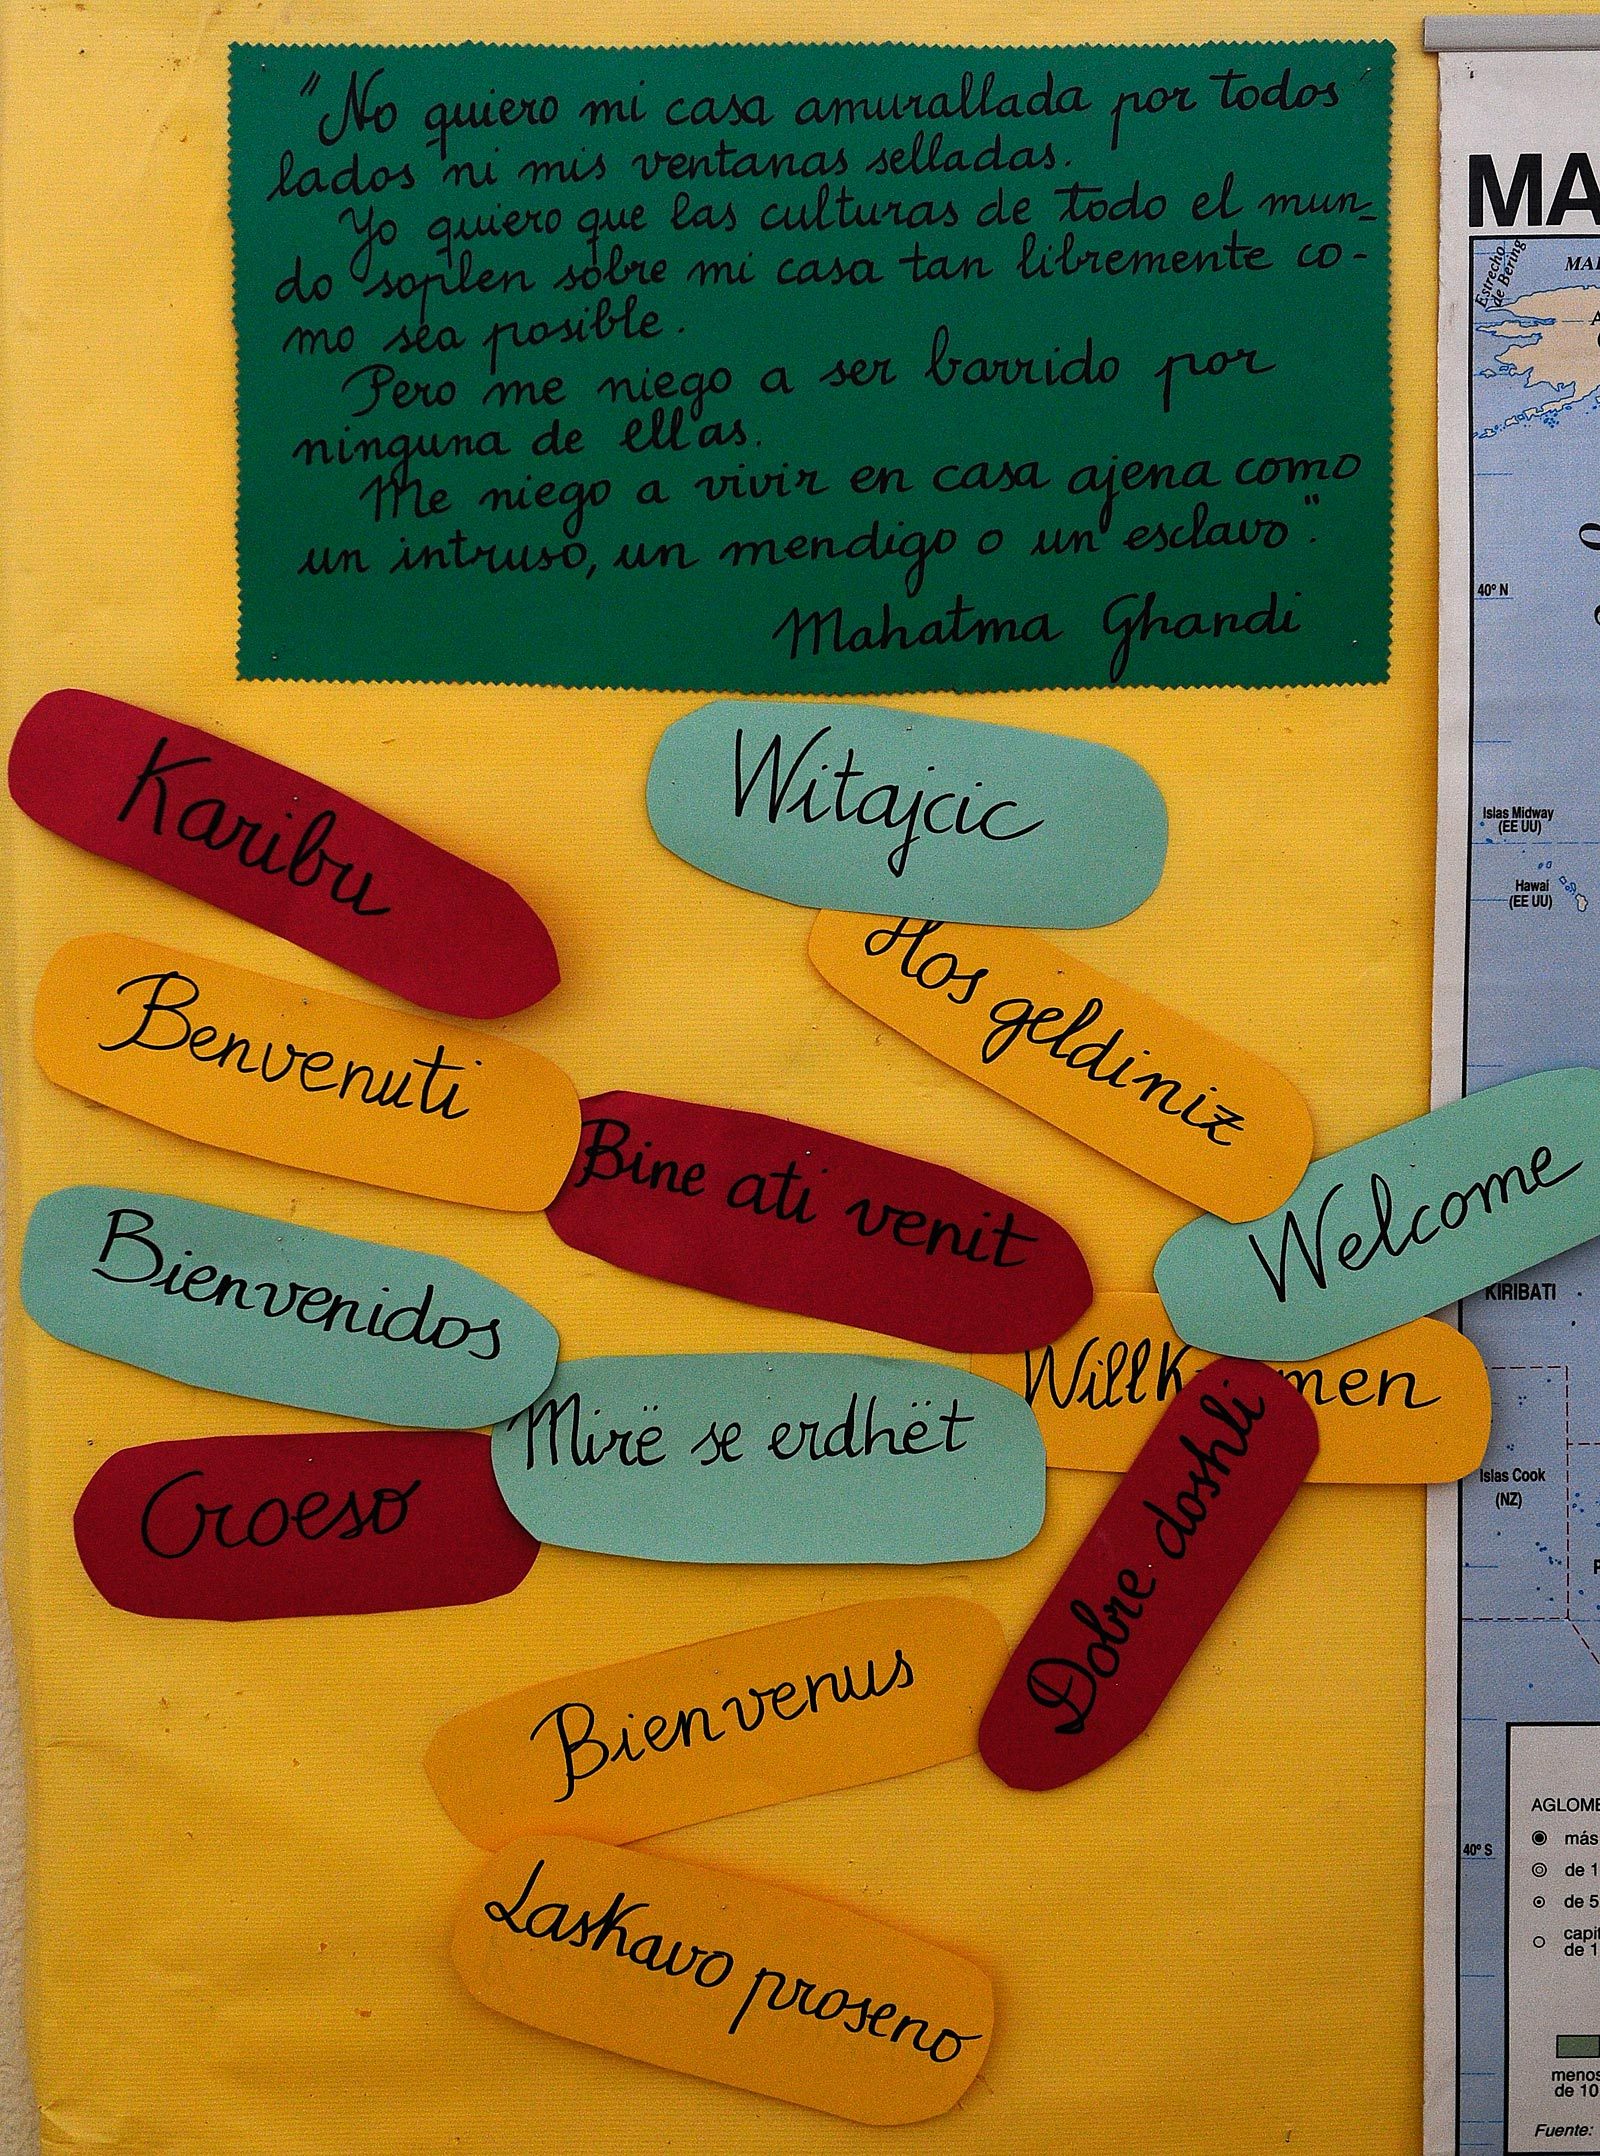 "No quiero mi casa amurallada por todos
lados ni mis ventanas selladas.
Yo quiero que las culturas de todo el mun-
do soplen sobre mi casa tan libremente co-
mo sea posible.
Pero me niego a ser barrido por
ninguna de ellas.
Me niego a vivir en casa ajena como
un intruso, un mendigo o un esclavo".
Mahatma Ghandi
Karibu
Witajcic
Hos geldiniz
Benvenuti
Bine ati venit
Welcome
Bienvenidos
Willk men
Mirë se erdhët
Croeso
Dobre doshli
Bienvenus
Laskavo proseno
MA
Estrecho
de Bering
MAR
40° N
Islas Midway
(EE UU)
Hawai
(EE UU)
KIRIBATI
Islas Cook
(NZ)
40° S
AGLOME
más
de 1
de 5
capit
de 1
menos
de 10
Fuente: